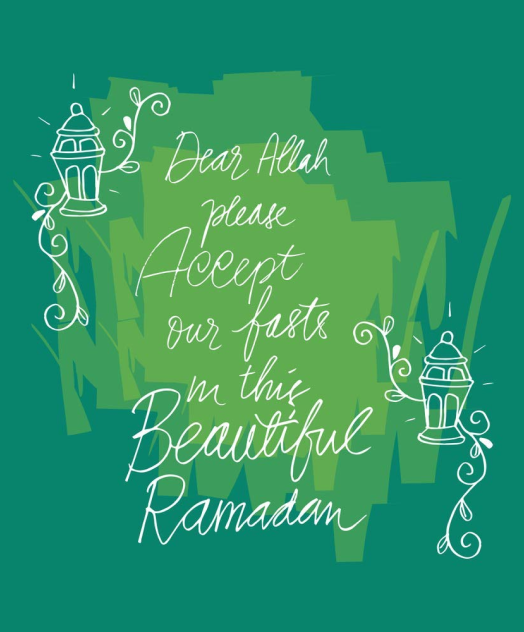 Dear Allah
please
Accept
our fasts
in this
Beautiful
Ramadan